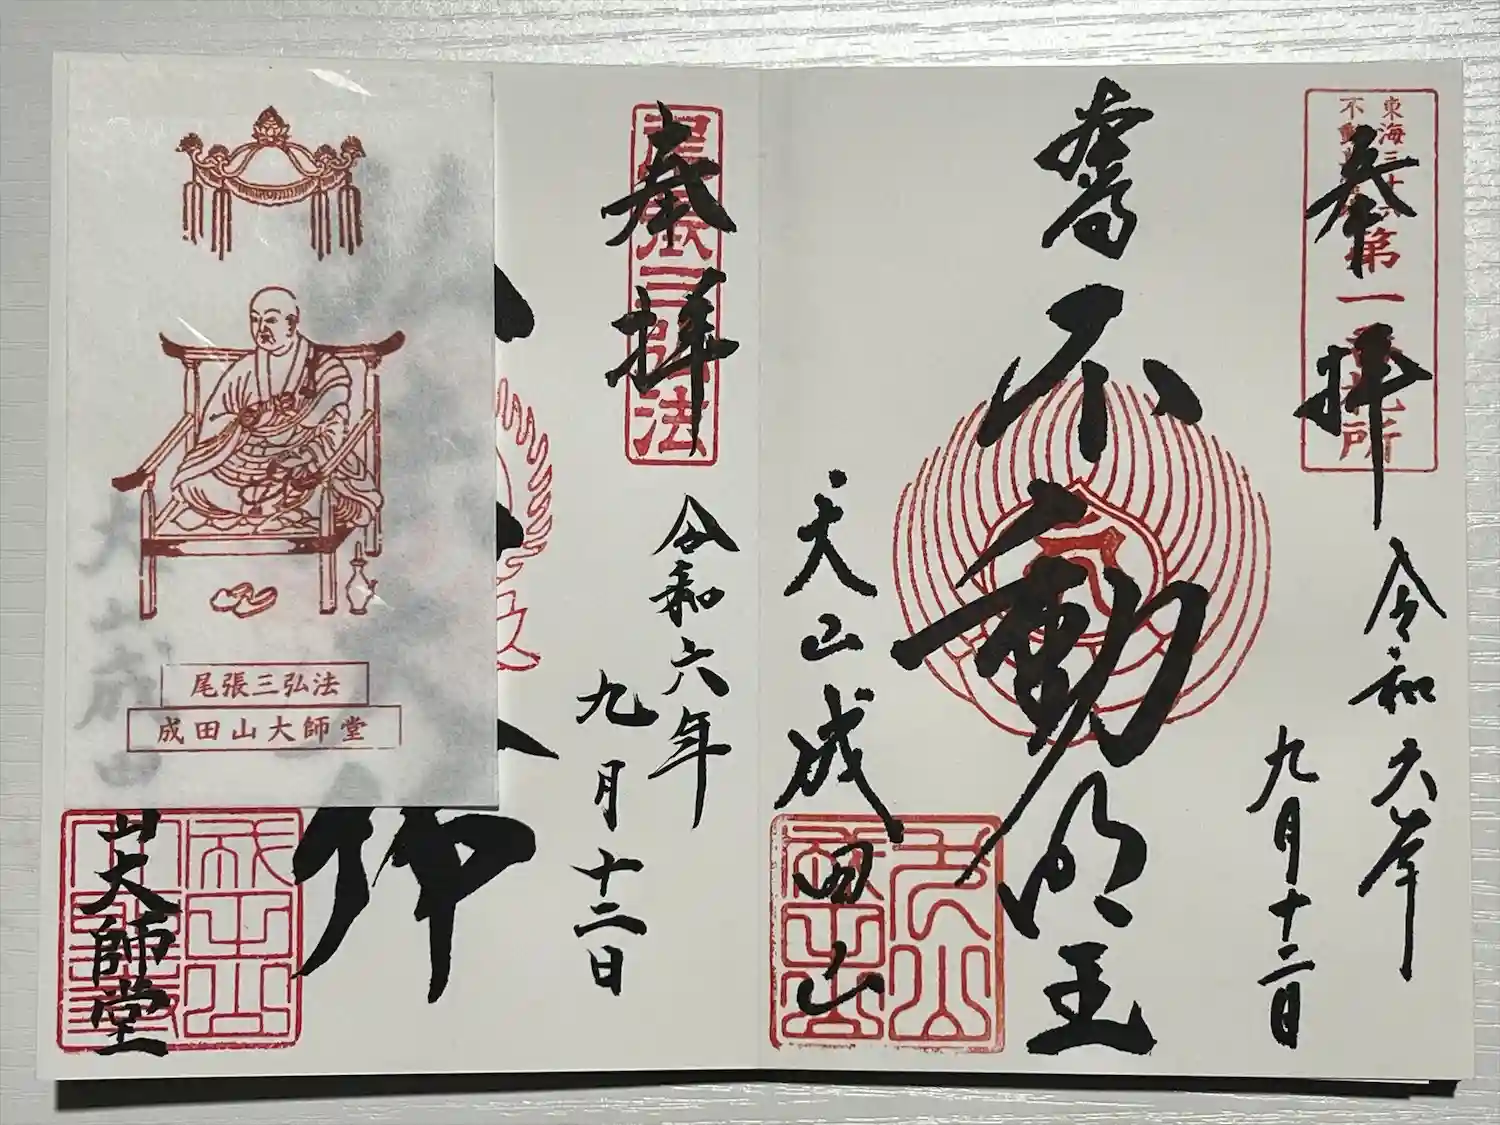 奉拝
東海三十六
不動尊
第一番札所
令和六年
九月十二日
不動明王
犬山成田山
奉拝
尾張三弘法
令和六年
九月十二日
師
山大師堂
成田山
尾張三弘法
成田山大師堂